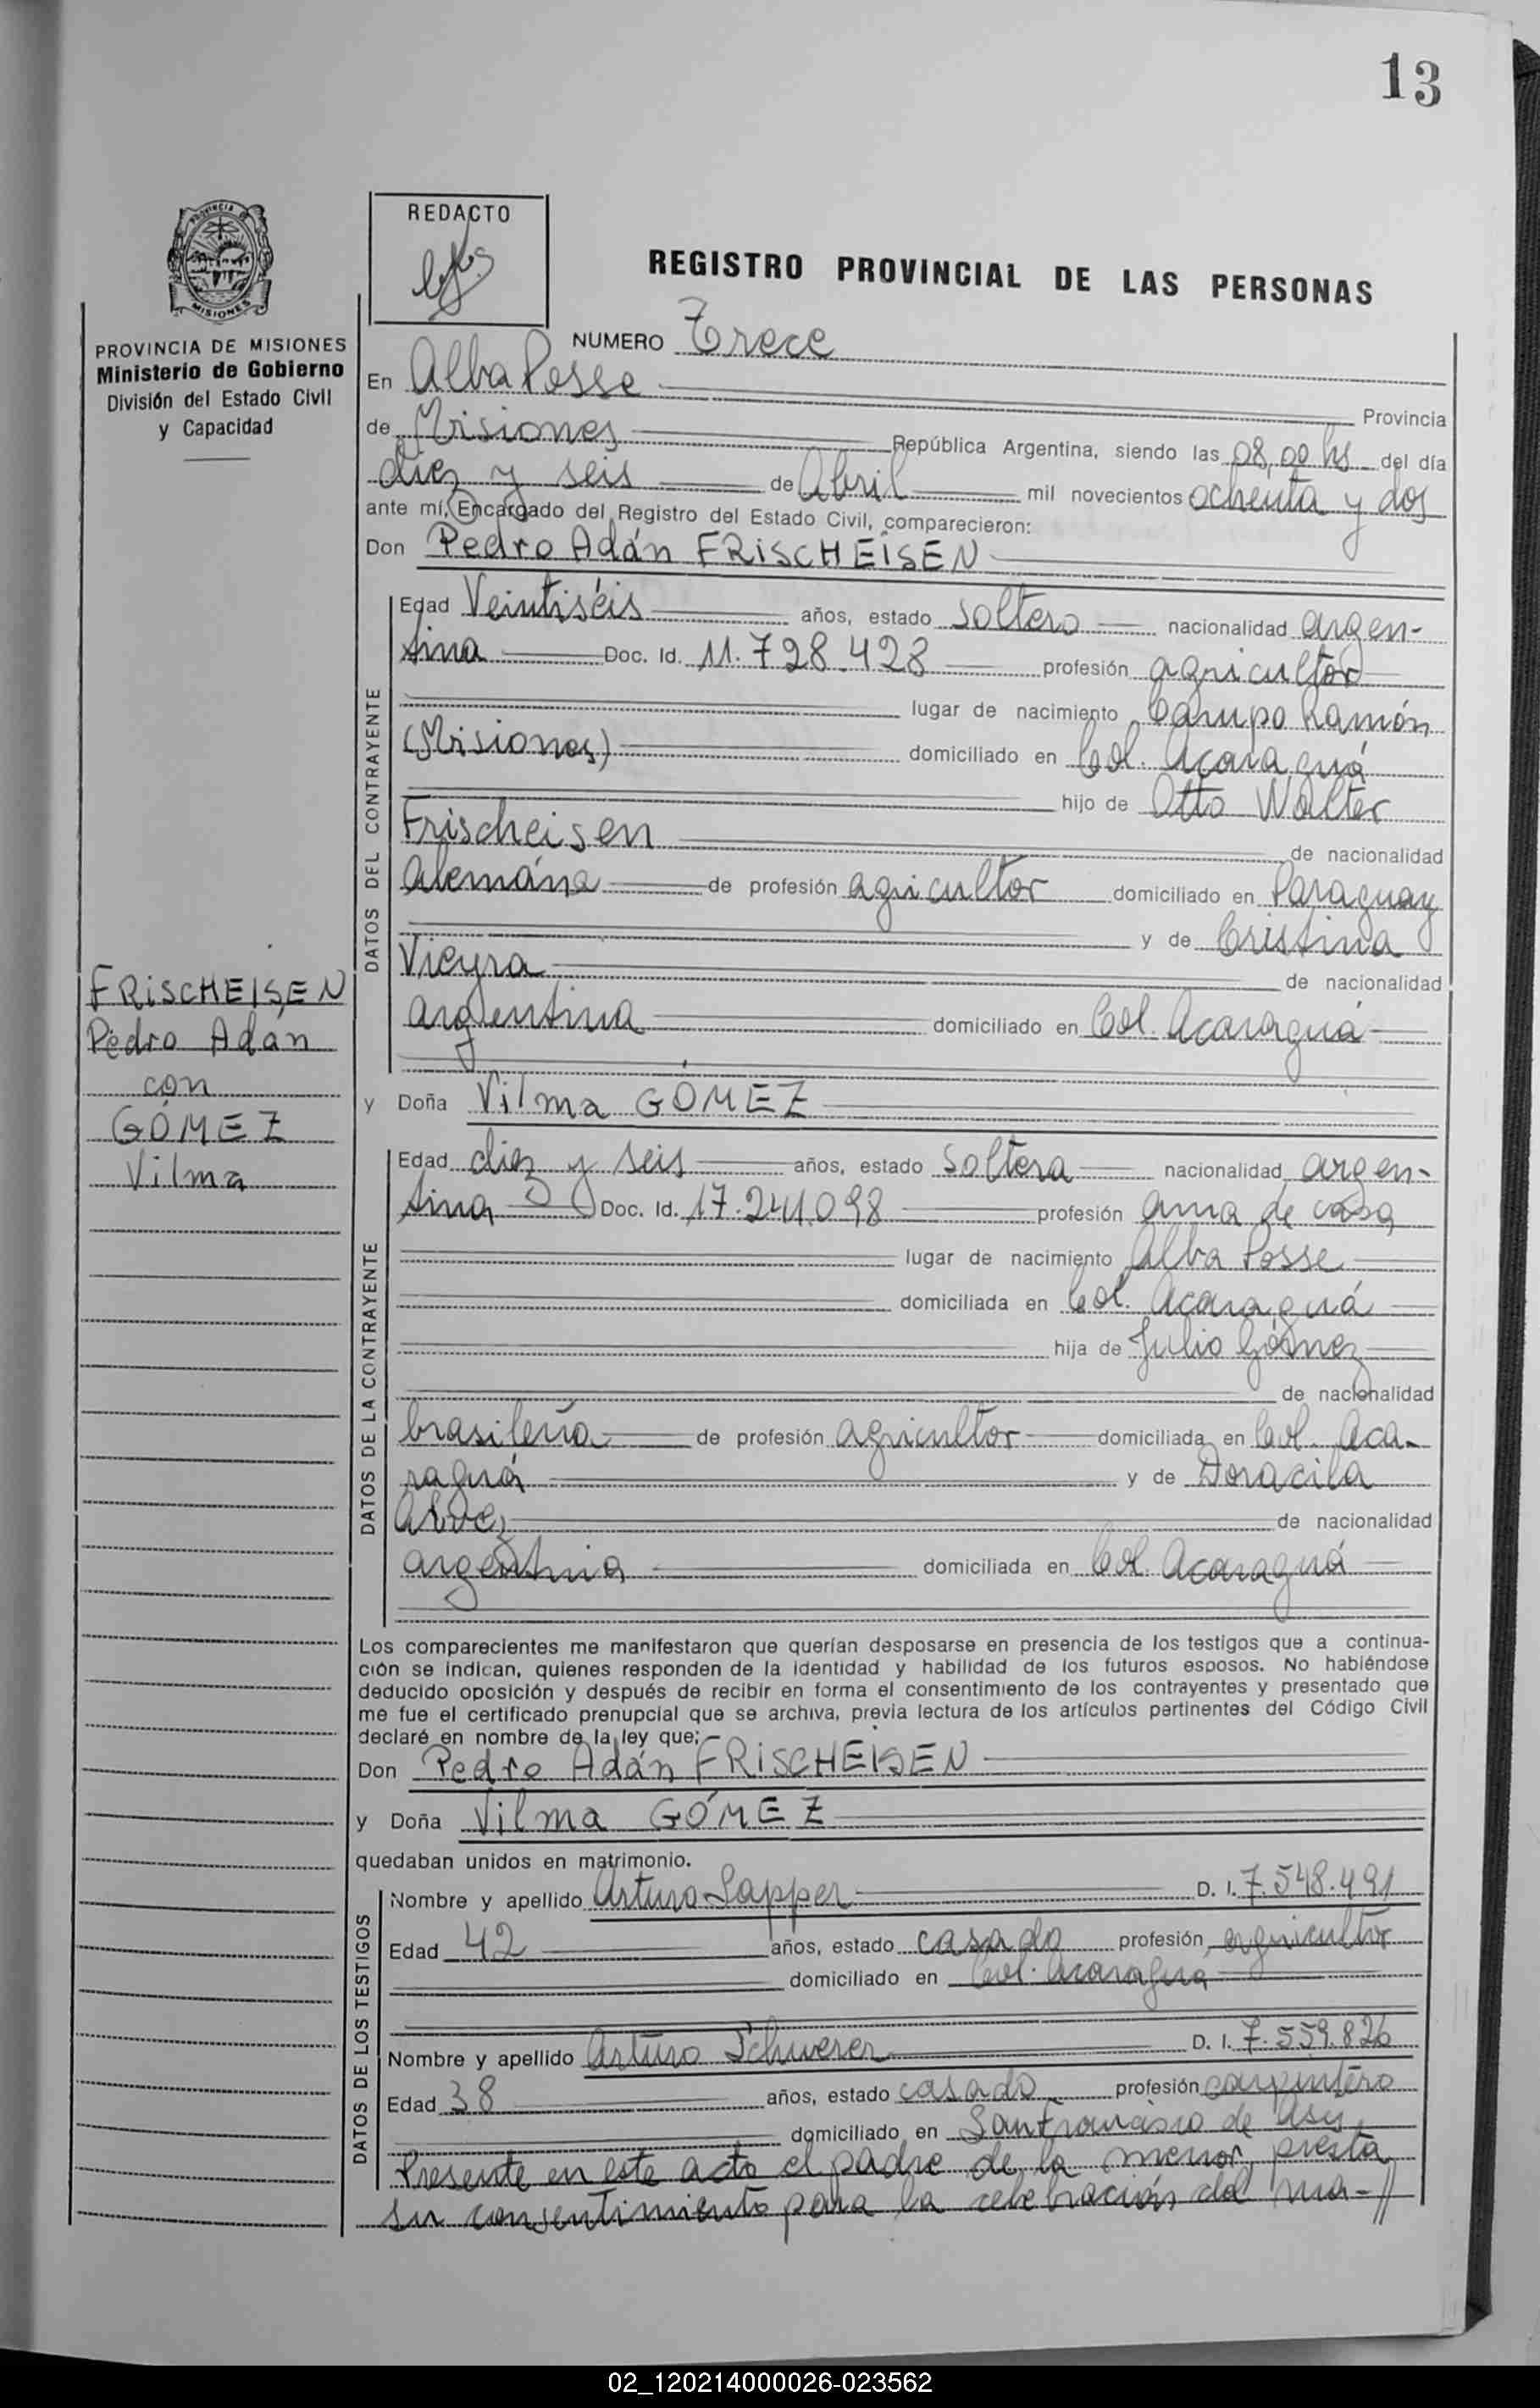 13
REDACTO
REGISTRO PROVINCIAL DE LAS PERSONAS
PROVINCIA DE
MISIONES
PROVINCIA DE MISIONES
Ministerio de Gobierno
División del Estado Civil
y Capacidad
FRISCHEISEN
Pedro Adán
con
GÓMEZ
Vilma
NUMERO Trece
En Alba Posse Provincia
de Misiones República Argentina, siendo las 08,00 hs del día
diez y seis de Abril mil novecientos ochenta y dos
ante mí, Encargado del Registro del Estado Civil, comparecieron:
Don Pedro Adán FRISCHEISEN
DATOS DEL CONTRAYENTE
Edad Veintiséis años, estado soltero nacionalidad argen-
tina Doc. Id. 11.728.428 profesión agricultor
lugar de nacimiento Campo Ramón
(Misiones) domiciliado en Col. Acaraguá
hijo de Otto Walter
Frischeisen de nacionalidad
alemána de profesión agricultor domiciliado en Paraguay
y de Cristina
Vieyra de nacionalidad
argentina domiciliado en Col. Acaraguá
y Doña Vilma GÓMEZ
DATOS DE LA CONTRAYENTE
Edad diez y seis años, estado soltera nacionalidad argen-
tina Doc. Id. 17.241.098 profesión ama de casa
lugar de nacimiento Alba Posse
domiciliada en Col. Acaraguá
hija de Julio Gómez
de nacionalidad
brasileña de profesión agricultor domiciliada en Col. Aca-
raguá y de Doracila
Alvez de nacionalidad
argentina domiciliada en Col. Acaraguá
Los comparecientes me manifestaron que querían desposarse en presencia de los testigos que a continua-
ción se indican, quienes responden de la identidad y habilidad de los futuros esposos. No habiéndose
deducido oposición y después de recibir en forma el consentimiento de los contrayentes y presentado que
me fue el certificado prenupcial que se archiva, previa lectura de los artículos pertinentes del Código Civil
declaré en nombre de la ley que:
Don Pedro Adán FRISCHEISEN
y Doña Vilma GÓMEZ
quedaban unidos en matrimonio.
DATOS DE LOS TESTIGOS
Nombre y apellido Arturo Sapper D. I. 7.548.491
Edad 42 años, estado casado profesión agricultor
domiciliado en Col. Acaragua
Nombre y apellido Arturo Schwerer D. I. 7.559.826
Edad 38 años, estado casado profesión carpintero
domiciliado en San Francisco de Asis
Presente en este acto el padre de la menor, presta
su consentimiento para la celebración del ma-//
02_120214000026-023562